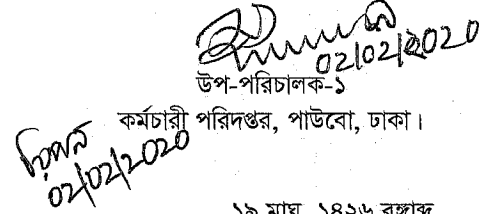 02/02/2020
উপ-পরিচালক-১
কর্মচারী পরিদপ্তর, পাউবো, ঢাকা।
রিপন
02/02/2020
১৯ মাঘ, ১৪২৬ বঙ্গাব্দ